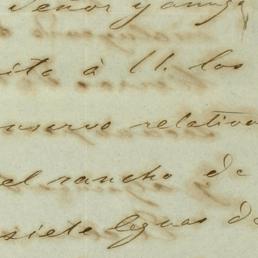 Señor y amigo
ito á U. los
nservo relativo
el rancho de
siete leguas de